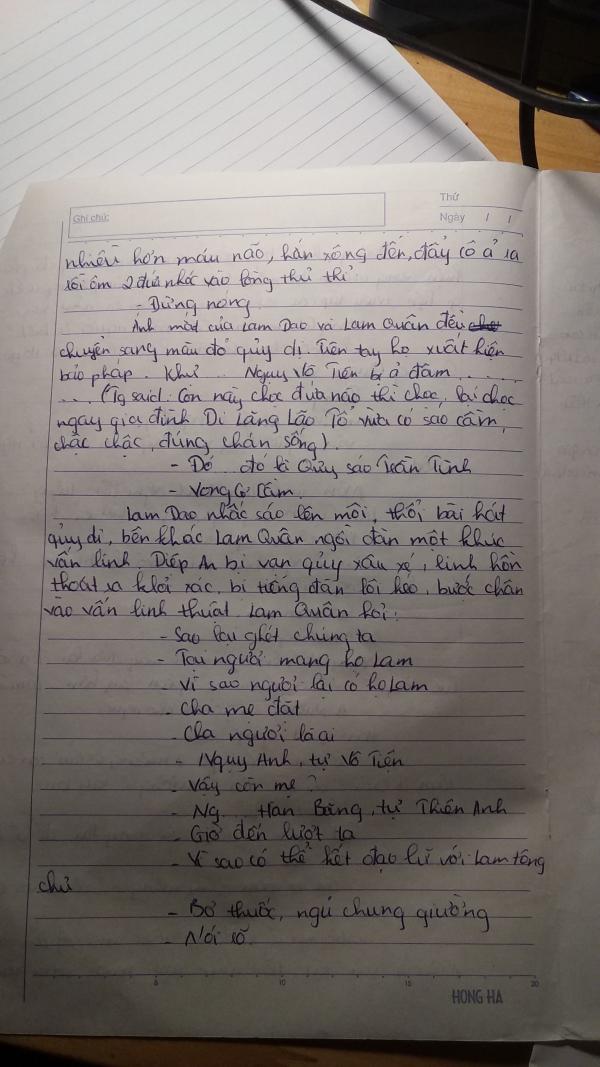 Ghi chú:
Thứ
Ngày / /
nhiều hơn máu não, hắn xông đến, đẩy cô ả ra
rồi ôm 2 đứa nhóc vào lòng thủ thỉ
- Đừng nóng
Ánh mắt của Lam Dao và Lam Quân đều
chuyển sang màu đỏ quỷ dị. Trên tay họ xuất hiện
bảo pháp. Khự... Ngụy Vô Tiện bị ả đâm.....
... (Tg said: Con này chọc đứa nào thì chọc, lại chọc
ngay gia đình Di Lăng Lão Tổ vừa có sáo cầm,
chậc chậc, đúng chán sống).
- Đó... đó là Quỷ sáo Trần Tình
- Vong Cơ Cầm.
Lam Dao nhấc sáo lên môi, thổi bài hát
quỷ dị, bên khác Lam Quân ngồi đàn một khúc
vấn linh. Diệp An bị vạn quỷ xâu xé, linh hồn
thoát ra khỏi xác, bị tiếng đàn lôi kéo, bước chân
vào vấn linh thuật. Lam Quân hỏi:
- Sao lại ghét chúng ta
- Tại người mang họ Lam
- Vì sao người lại có họ Lam
- Cha mẹ đặt
- Cha người là ai
- Ngụy Anh, tự Vô Tiện
- Vậy còn mẹ?
- Ng... Hàn Băng, tự Thiên Anh
- Giờ đến lượt ta
- Vì sao có thể kết đạo lữ với Lam tông
chủ
- Bỏ thuốc, ngủ chung giường
- Nói rõ
5 10 15 20
HONG HA